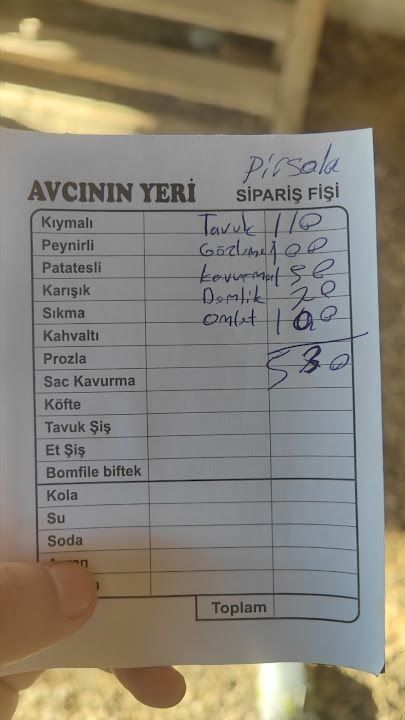 Pirsola
AVCININ YERİ SİPARİŞ FİŞİ
Kıymalı Tavuk 110
Peynirli Gözleme 100
Patatesli kavurma 150
Karışık Demlik
Sıkma omlet 100
Kahvaltı
Prozla 530
Sac Kavurma
Köfte
Tavuk Şiş
Et Şiş
Bomfile biftek
Kola
Su
Soda
Toplam